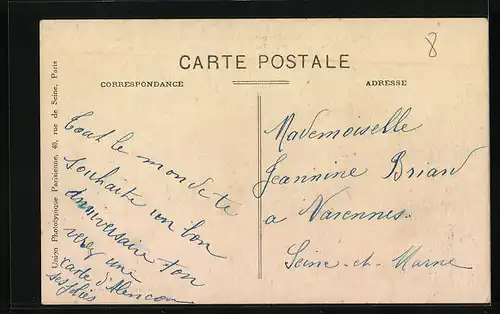 CARTE POSTALE
CORRESPONDANCE
ADRESSE
8
Union Phototypique Parisienne, 40, rue de Seine, Paris
Tout le monde te
souhaite un bon
anniversaire ton
verez une
carte d'Alencon
ses jolies
Mademoiselle
Jeannine Briand
a Varennes
Seine-et-Marne